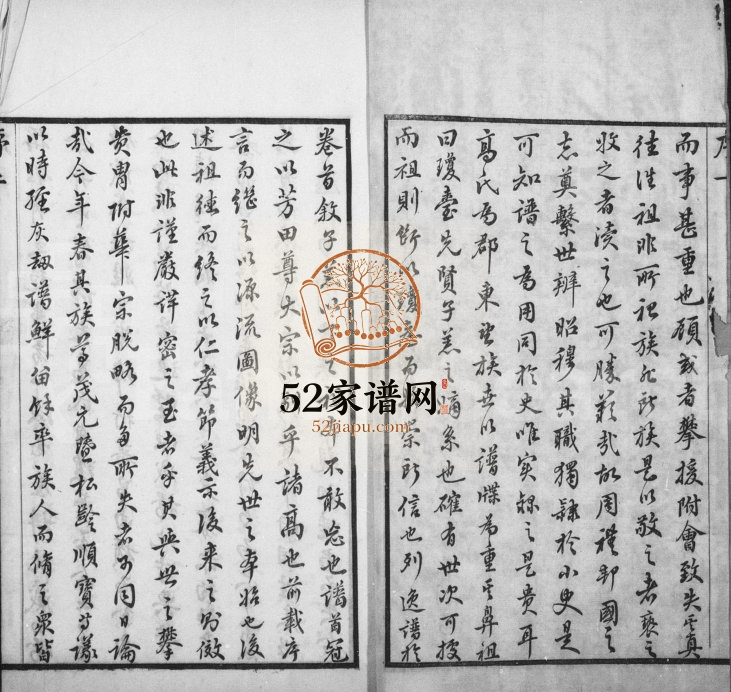 序一
而事甚重也顧或者攀援附會致失其真
往往祖非所祖族非所族是以敬之者褻之
收之者瀆之也可勝歎哉故周禮邦國之
志奠繫世辨昭穆其職獨隸於小史是
可知譜之為用同於史唯實錄之是貴耳
高氏為郡東望族世以譜牒為重其鼻祖
曰瓊臺先賢子羔之嫡系也確有世次可按
而祖則斷以瓊而崇所信也列逸譜於
卷首敘子以不敢忘也譜首冠
之以芳田尊大宗以乎諸高也前載序
言而繼之以源流圖像明先世之本始也後
述祖德而終之以仁孝節義示後來之則傚
也此非謹嚴詳密之至者乎其與世之攀
貴胄附華宗脫略而多所失者可同日論
哉今年春其族茂元暨松齡順寶等議
以時經灰劫譜鮮留餘率族人而脩之眾皆
52家谱网
52jiapu.com